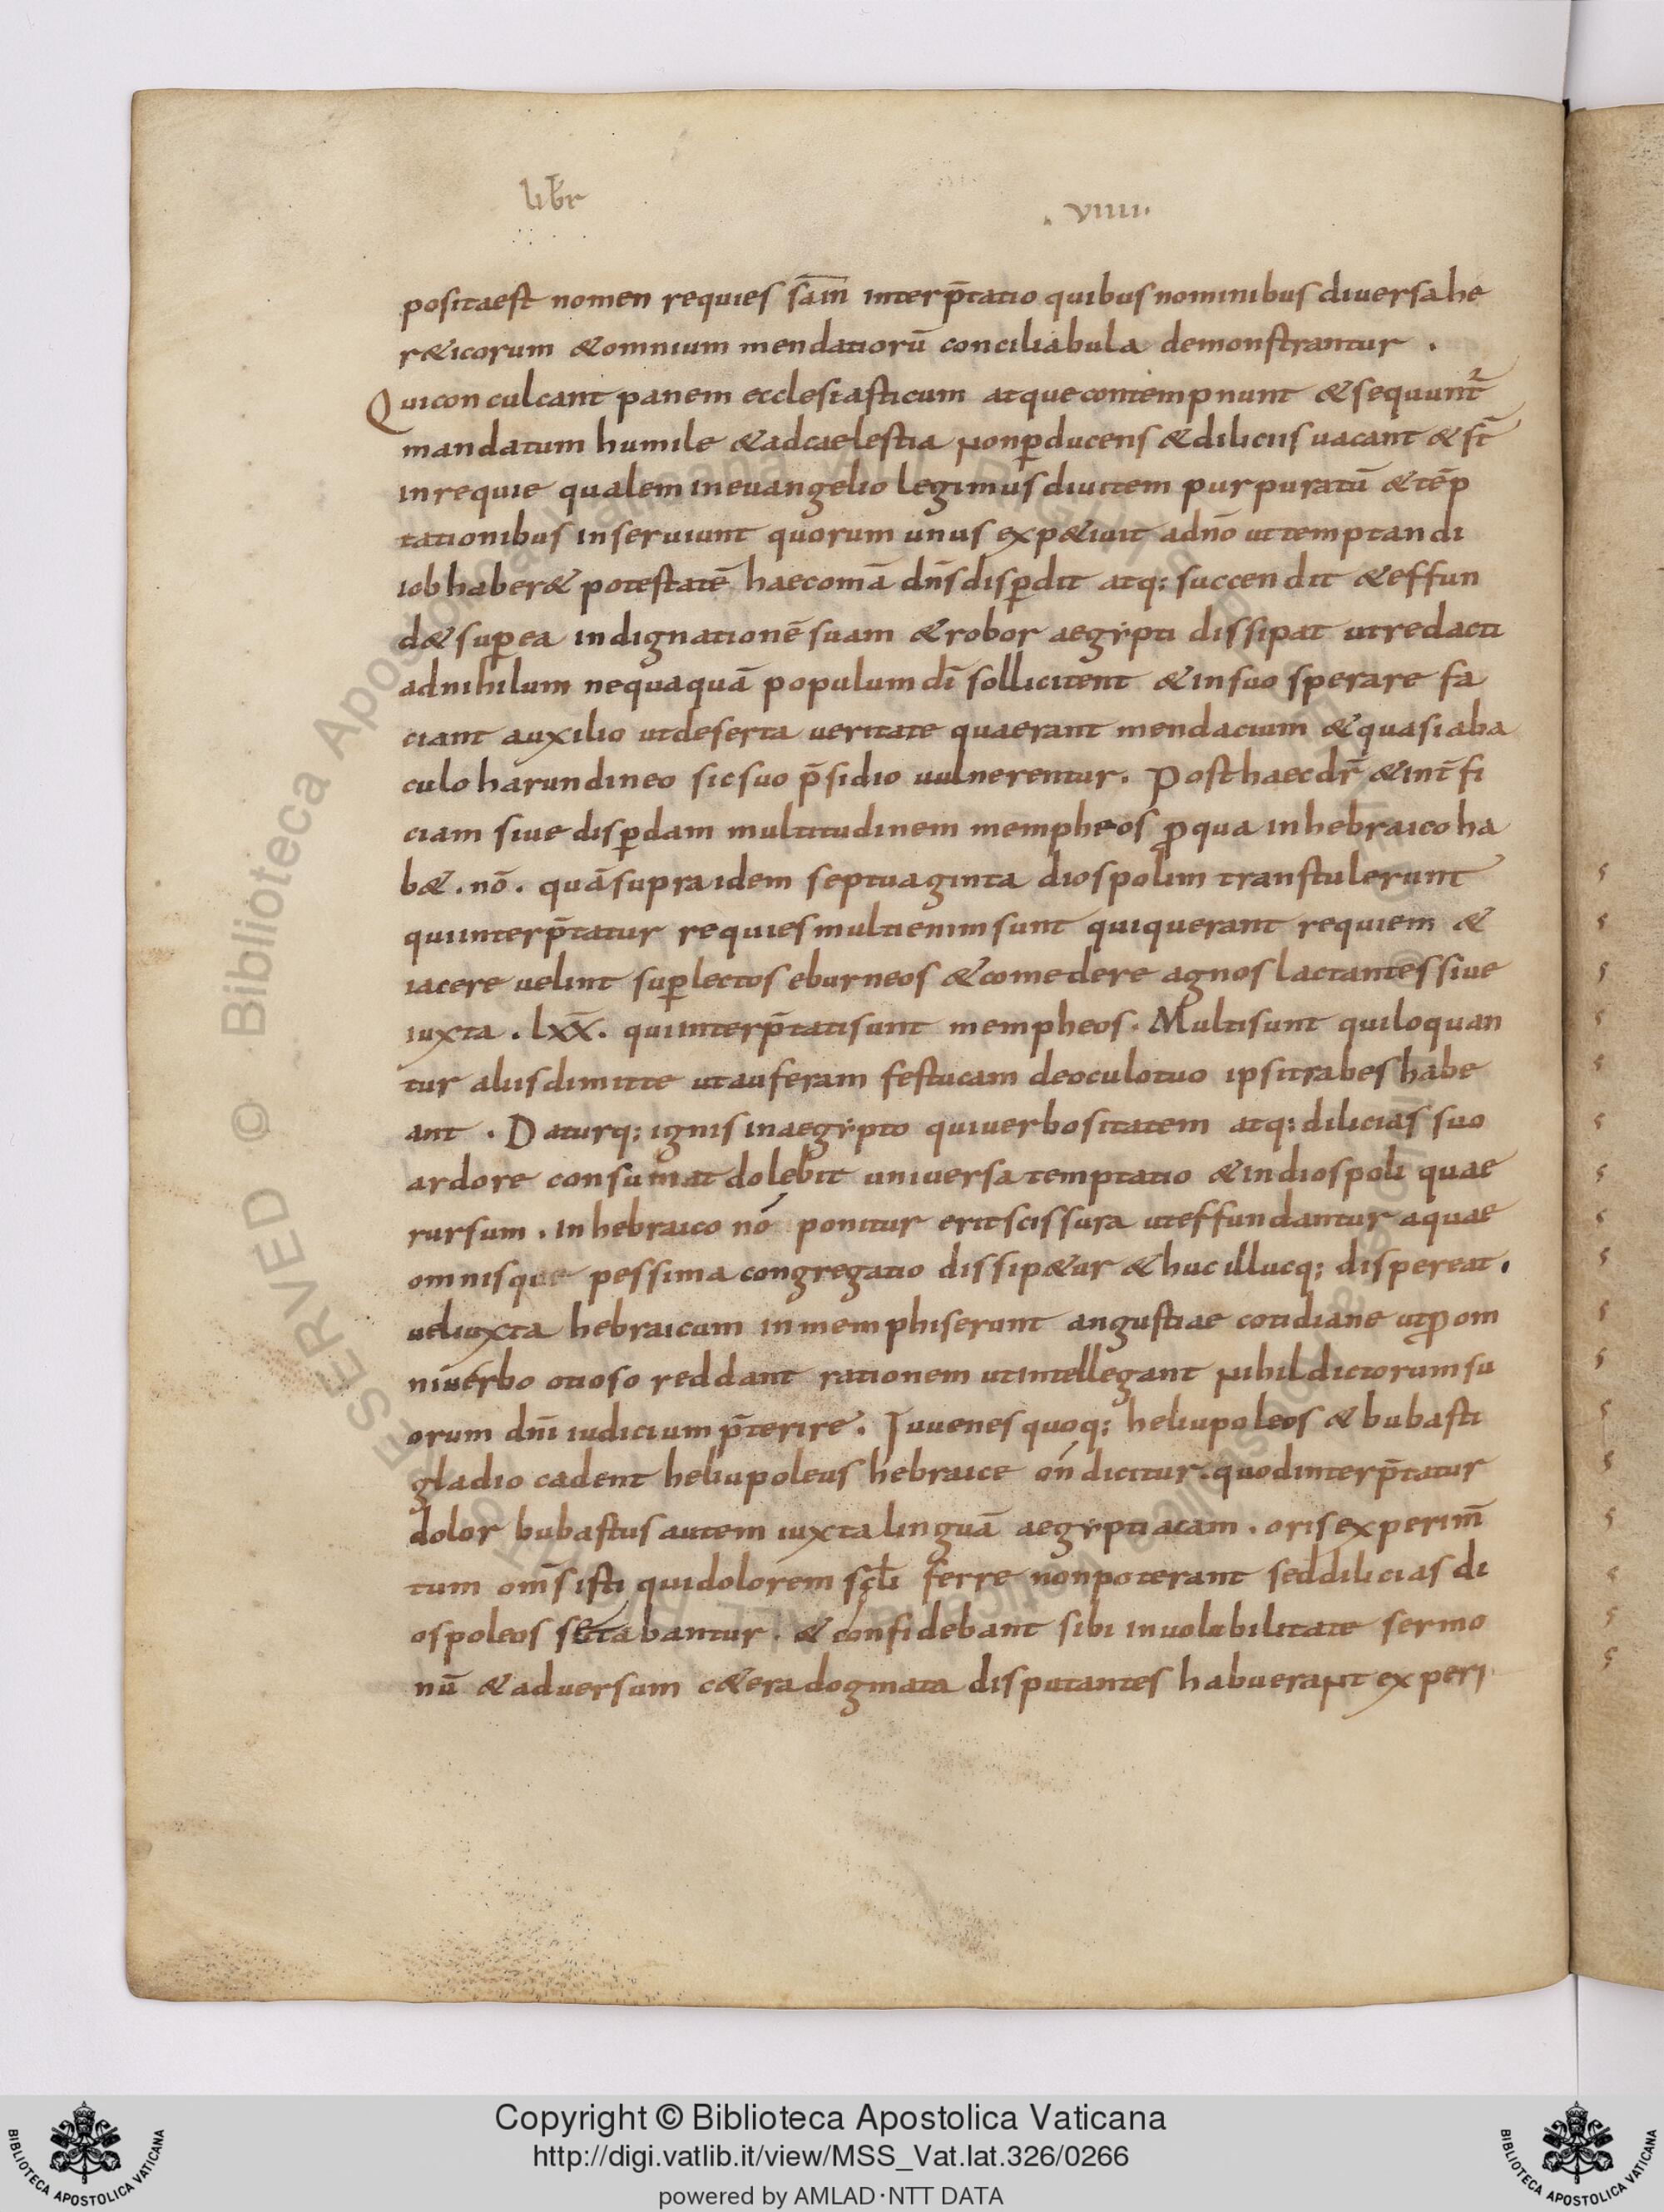 libr̄ .VIIII.
positaest nomen requies sām̄ interp̄tatio quibus nominibus diuersa he
r&icorum &omnium mendatiorū conciliabula demonstrantur .
Quiconculcant panem ecclesiasticum atque contempnunt & sequunt̄
mandatum humile & adcaelestia non ꝑducens & diliciis uacant & st̄
inrequie qualem ineuangelio legimus diuitem purpuratū & tēp
tationibus inseruiunt quorum unus exp&iuit adnō ut temptandi
iob haber& potestatē haecomā dn̄s disꝑdit atq; succendit & effun
d& suꝑ ea indignationē suam & robor aegẏpti dissipat ut redacti
adnihilum nequaquā populum dī sollicitent & insuo sperare fa
ciant auxilio utdeserta ueritate quaerant mendacium & quasi aba
culo harundineo sic suo p̄sidio uulnerentur. Post haec dr̄ & int̄fi
ciam siue disꝑdam multitudinem mempheos ꝓqua inhebraico ha
b& . nō . quā supra idem septuaginta diospolim transtulerunt
quiinterp̄tatur requies multienim sunt quiquerant requiem &
iacere uelint suꝑ lectos eburneos & comedere agnos lactantes siue
iuxta . lxx̄ . quiinterp̄tatisunt mempheos . Multisunt quiloquan
tur aliis dimitte utauferam festucam deoculotuo ipsitrabes habe
ant . Daturq; ignis inaegẏpto quiuerbositatem atq; dilicias suo
ardore consumat dolebit uniuersa temptatio & indiospoli quae
rursum . inhebraico nó ponitur eritscissura uteffundantur aquae
omnisque pessima congregatio dissip&ur & huc illucq; dispereat .
ueliuxta hebraicum inmemphiserunt angustiae cotidiane utꝓom
niuerbo otioso reddant rationem utintellegant nihil dictorum su
orum dn̄i iudicium p̄terire . Iuuenes quoq; heliupoleos & bubasti
gladio cadent heliupoleus hebraice ón dicitur . quodinterp̄tatur
dolor bubastus autem iuxta linguā aegẏptiacam . oris experim̄
tum om̄s isti quidolorem scl̄i ferre nonpoterant sed dilicias di
ospoleos sectabantur . & confidebant sibi inuolubilitate sermo
nū & aduersum c&era dogmata disputantes habuerant experi
Copyright © Biblioteca Apostolica Vaticana
http://digi.vatlib.it/view/MSS_Vat.lat.326/0266
powered by AMLAD·NTT DATA
BIBLIOTECA APOSTOLICA VATICANA
BIBLIOTECA APOSTOLICA VATICANA